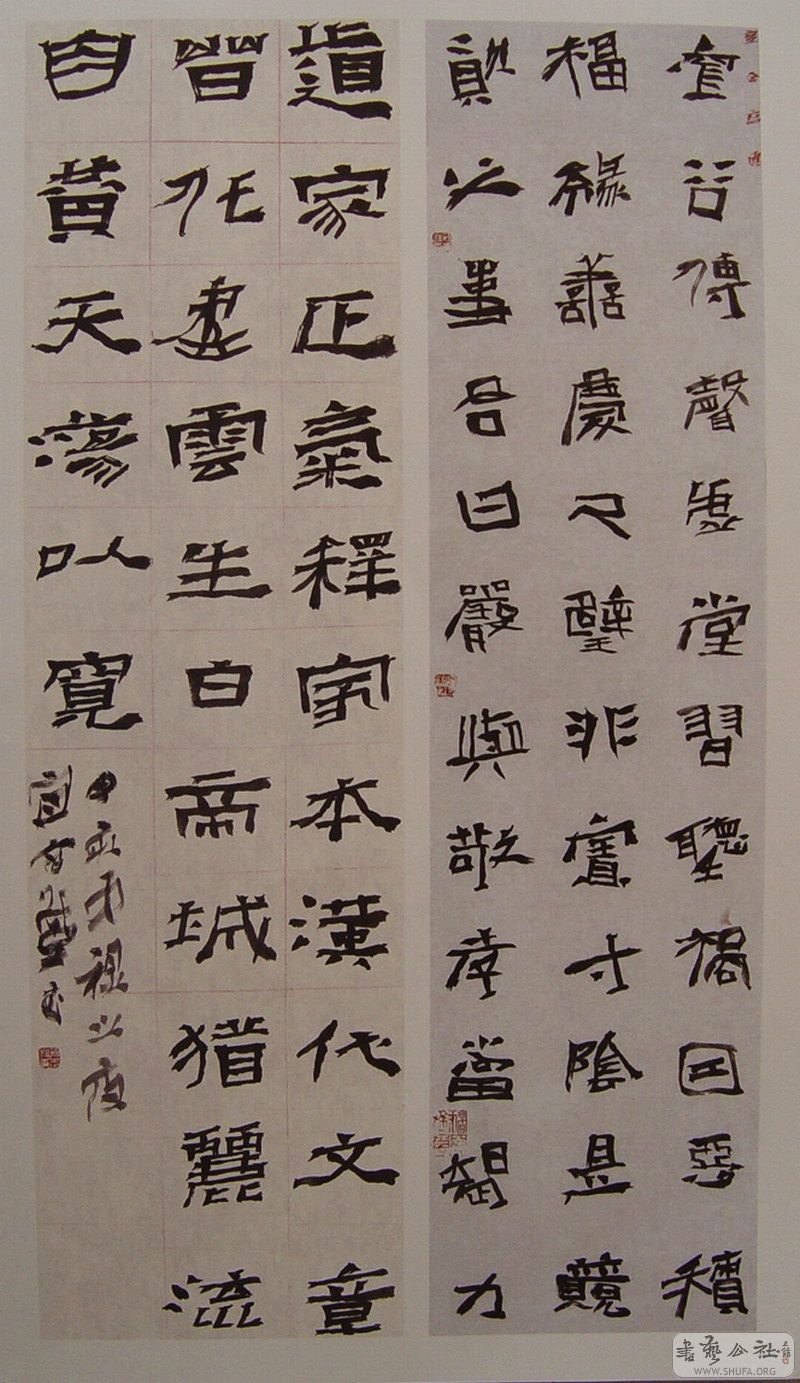 空谷傳聲虛堂習聽禍因惡積
福緣善慶尺璧非寶寸陰是競
資父事君曰嚴與敬孝當竭力
道家正氣釋家本漢代文章
晉代書雲生白帝城猶麗流
自黃天蕩以寬
書藝公社
WWW.SHUFA.ORG